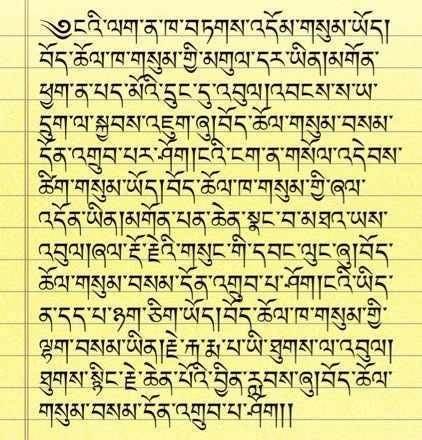 ༄༅ངའི་ལག་ན་ཁ་བཏགས་འདོམ་གསུམ་ཡོད།
བོད་ཆོལ་ཁ་གསུམ་གྱི་མགུལ་དར་ཡིན།མགོན་
ཕྱག་ན་པད་མོའི་དྲུང་དུ་འབུལ།འབངས་ས་ཡ་
དྲུག་ལ་སྐྱབས་འཇུག་ཞུ།བོད་ཆོལ་གསུམ་བསམ་
དོན་འགྲུབ་པར་ཤོག།ངའི་ངག་ན་གསོལ་འདེབས་
ཚིག་གསུམ་ཡོད།བོད་ཆོལ་ཁ་གསུམ་གྱི་ཞལ་
འདོན་ཡིན།མགོན་པན་ཆེན་སྣང་བ་མཐའ་ཡས་
འབུལ།ཞལ་རྡོ་རྗེའི་གསུང་གི་དབང་ལུང་ཞུ།བོད་
ཆོལ་གསུམ་བསམ་དོན་འགྲུབ་པ་ཤོག།ངའི་ཡིད་
ན་དད་པ་ཉག་ཅིག་ཡོད།བོད་ཆོལ་ཁ་གསུམ་གྱི་
ལྷག་བསམ་ཡིན།རྗེ་ཀརྨ་པ་ཡི་ཐུགས་ལ་འབུལ།
ཐུགས་སྙིང་རྗེ་ཆེན་པོའི་བྱིན་རླབས་ཞུ།བོད་ཆོལ་
གསུམ་བསམ་དོན་འགྲུབ་པ་ཤོག།།